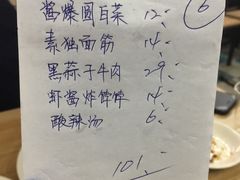 6
酱爆圆白菜 12:
素独面筋 14:
黑蒜子牛肉 29:
虾酱炸饽饽 14:
酸辣汤 6:
101: